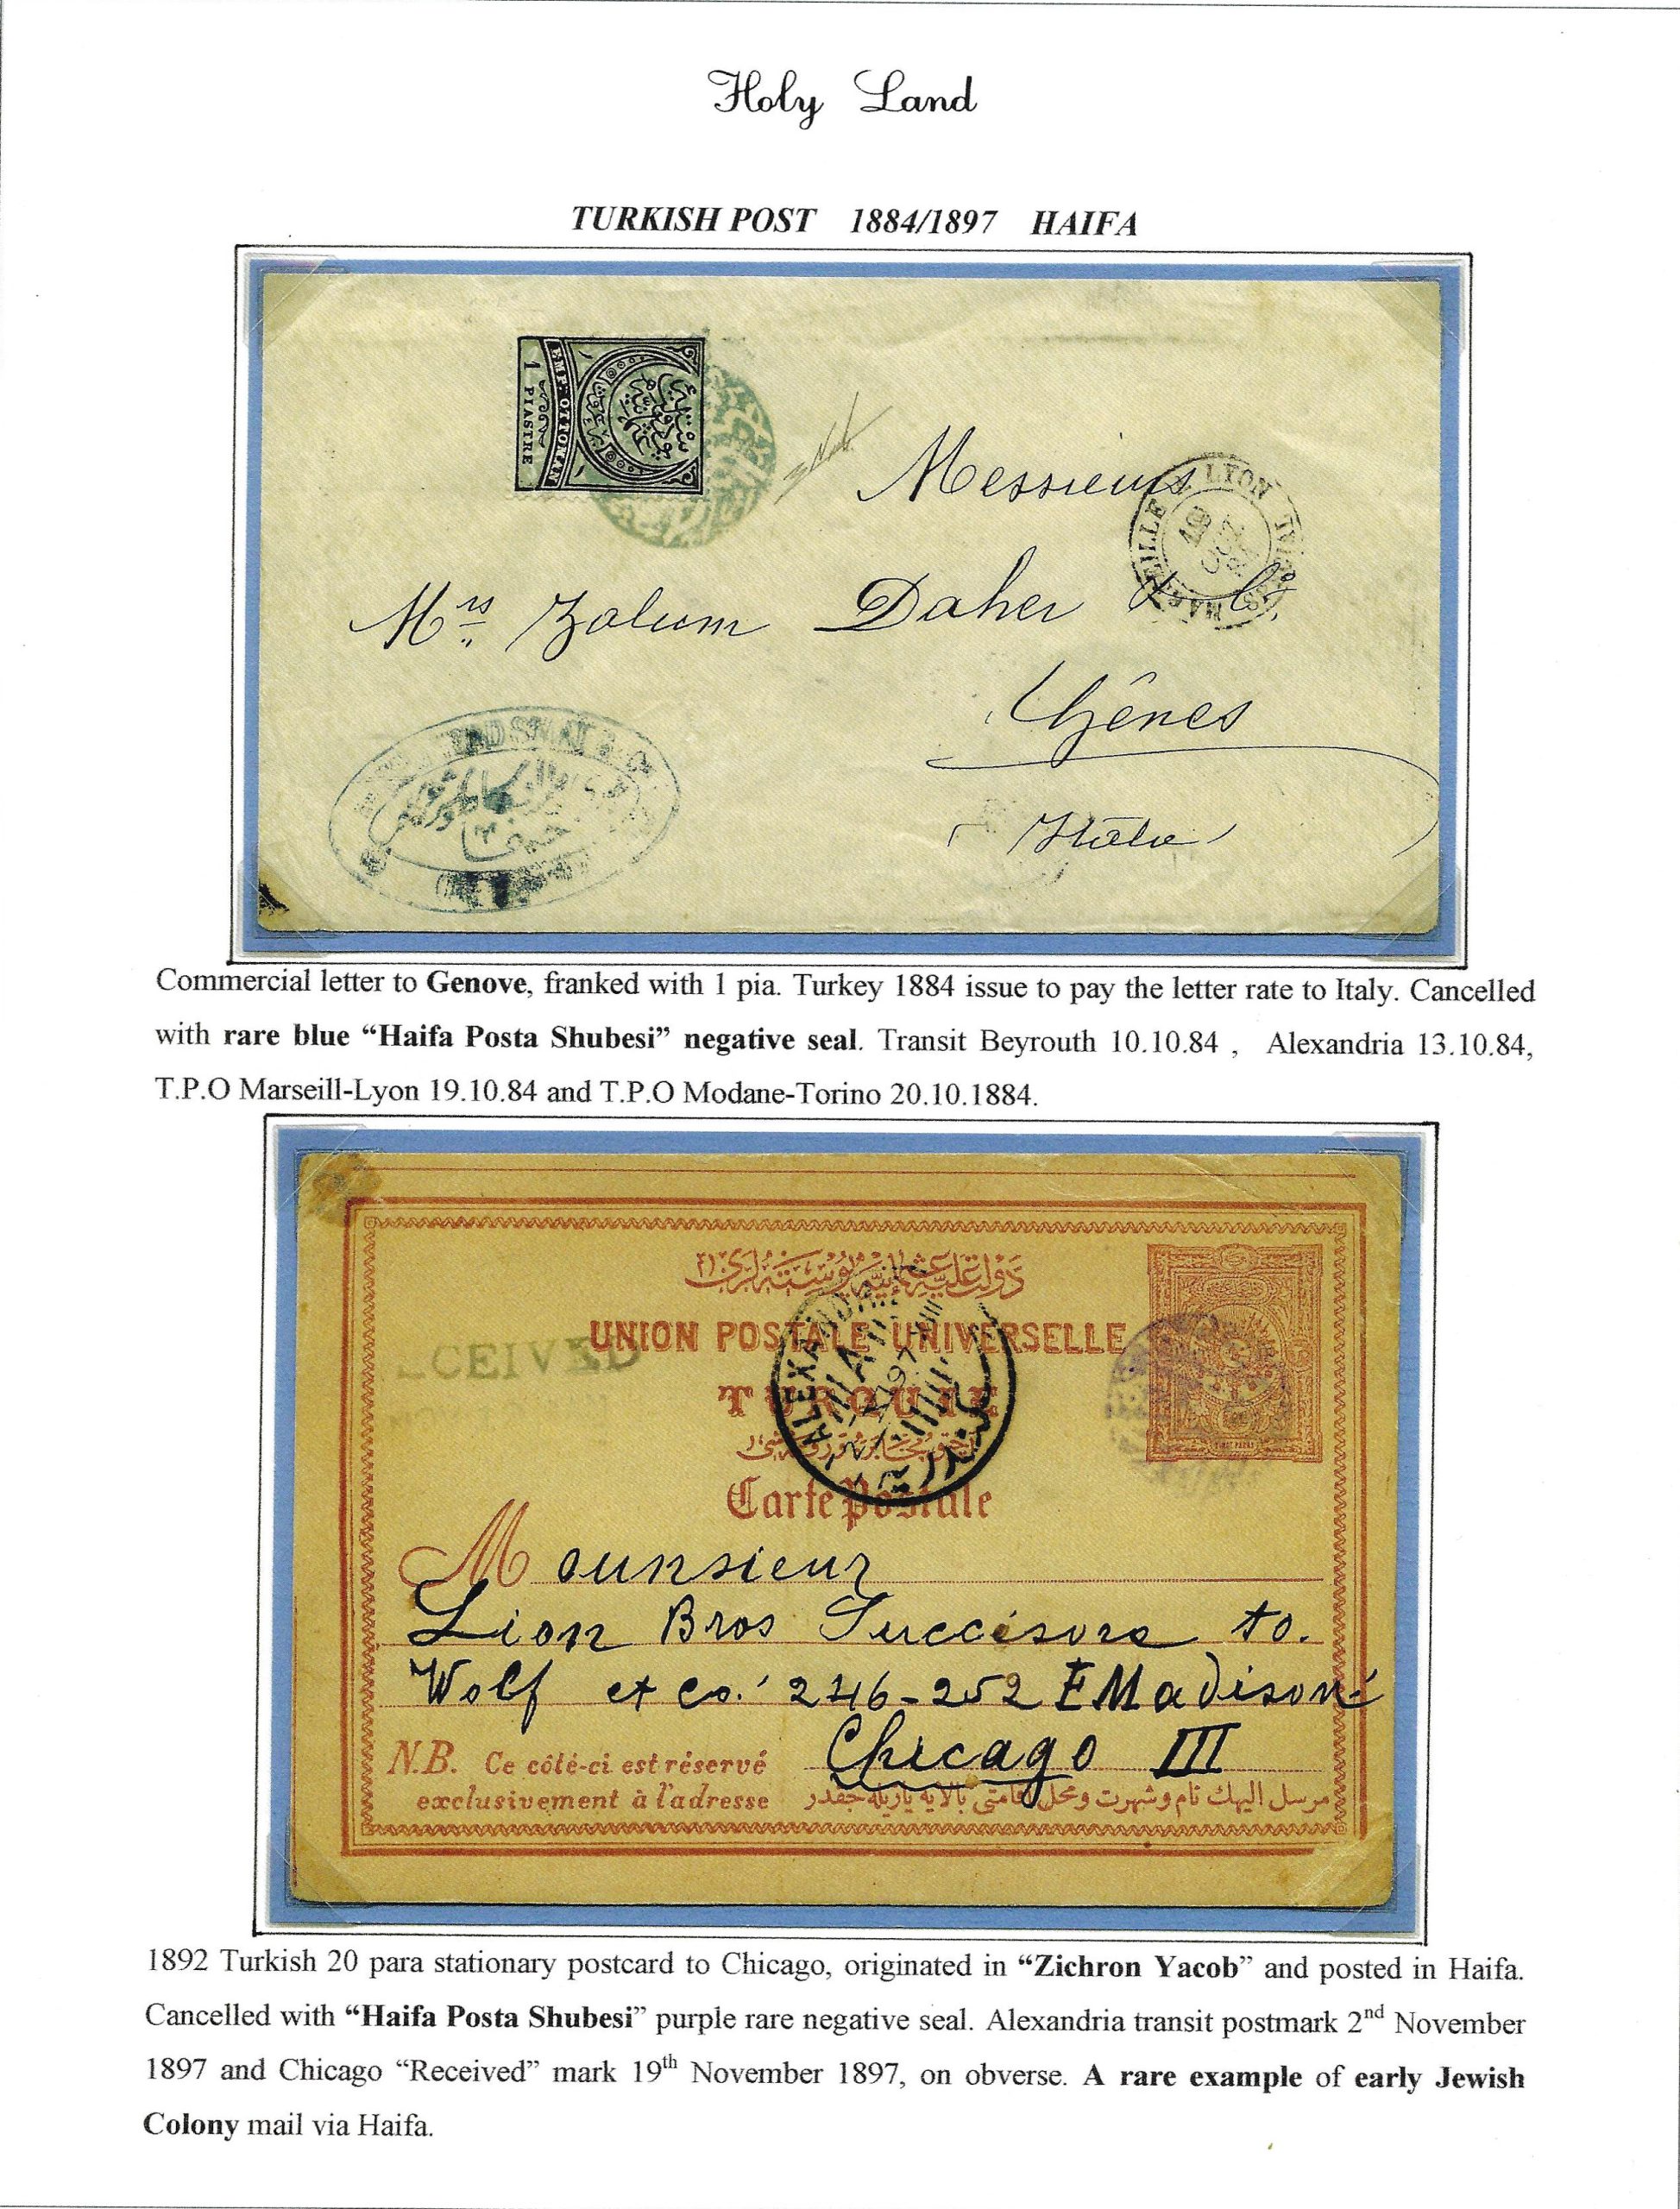 Holy Land
TURKISH POST 1884/1897 HAIFA
1 PIASTRE
EMP. OTTOMAN
Messieurs
LYON
Mrs Zalum Daher & Cie
Gênes
Italie
Commercial letter to Genove, franked with 1 pia. Turkey 1884 issue to pay the letter rate to Italy. Cancelled
with rare blue “Haifa Posta Shubesi” negative seal. Transit Beyrouth 10.10.84 , Alexandria 13.10.84,
T.P.O Marseill-Lyon 19.10.84 and T.P.O Modane-Torino 20.10.1884.
دولت عليه عثمانيه پوسته لری
UNION POSTALE UNIVERSELLE
CEIVED
TURQUIE
ALEXANDRI
Carte Postale
Mounsieur
Lion Bros Succésors to.
Wolf et Co. 246-252 E Madison
Chicago III
N.B. Ce côté-ci est réservé
exclusivement à l'adresse
مرسل اليهك نام وشهرت ومحل اقامتی بالايه يازيله جقدر
1892 Turkish 20 para stationary postcard to Chicago, originated in “Zichron Yacob” and posted in Haifa.
Cancelled with “Haifa Posta Shubesi” purple rare negative seal. Alexandria transit postmark 2nd November
1897 and Chicago “Received” mark 19th November 1897, on obverse. A rare example of early Jewish
Colony mail via Haifa.